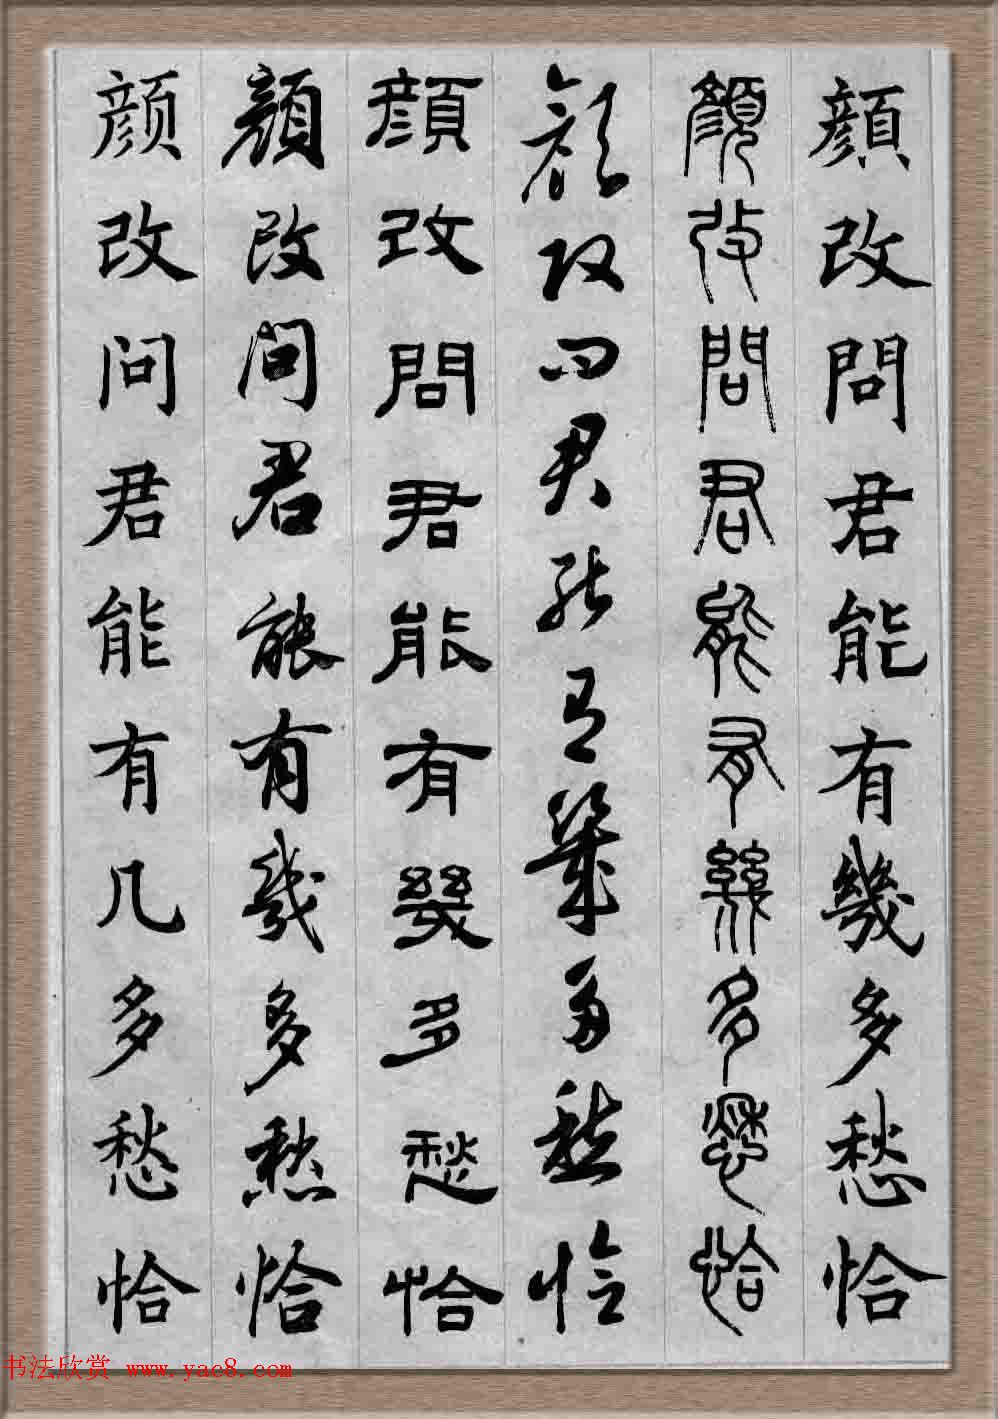 顔改問君能有幾多愁恰
顔改問君能有幾多愁恰
顔改问君能有幾多愁恰
顔改問君能有幾多愁恰
顔改问君能有幾多愁恰
颜改问君能有几多愁恰
书法欣赏 www.yac8.com